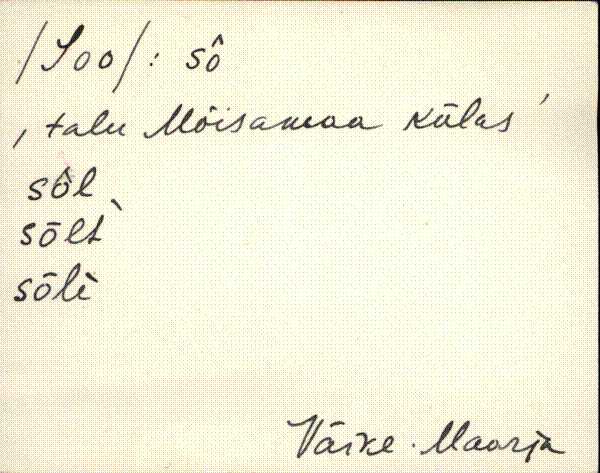 /Soo/: sô
‚talu Mõisamaa külas’
sôl
sōlt̀
sōlè
Väike-Maarja